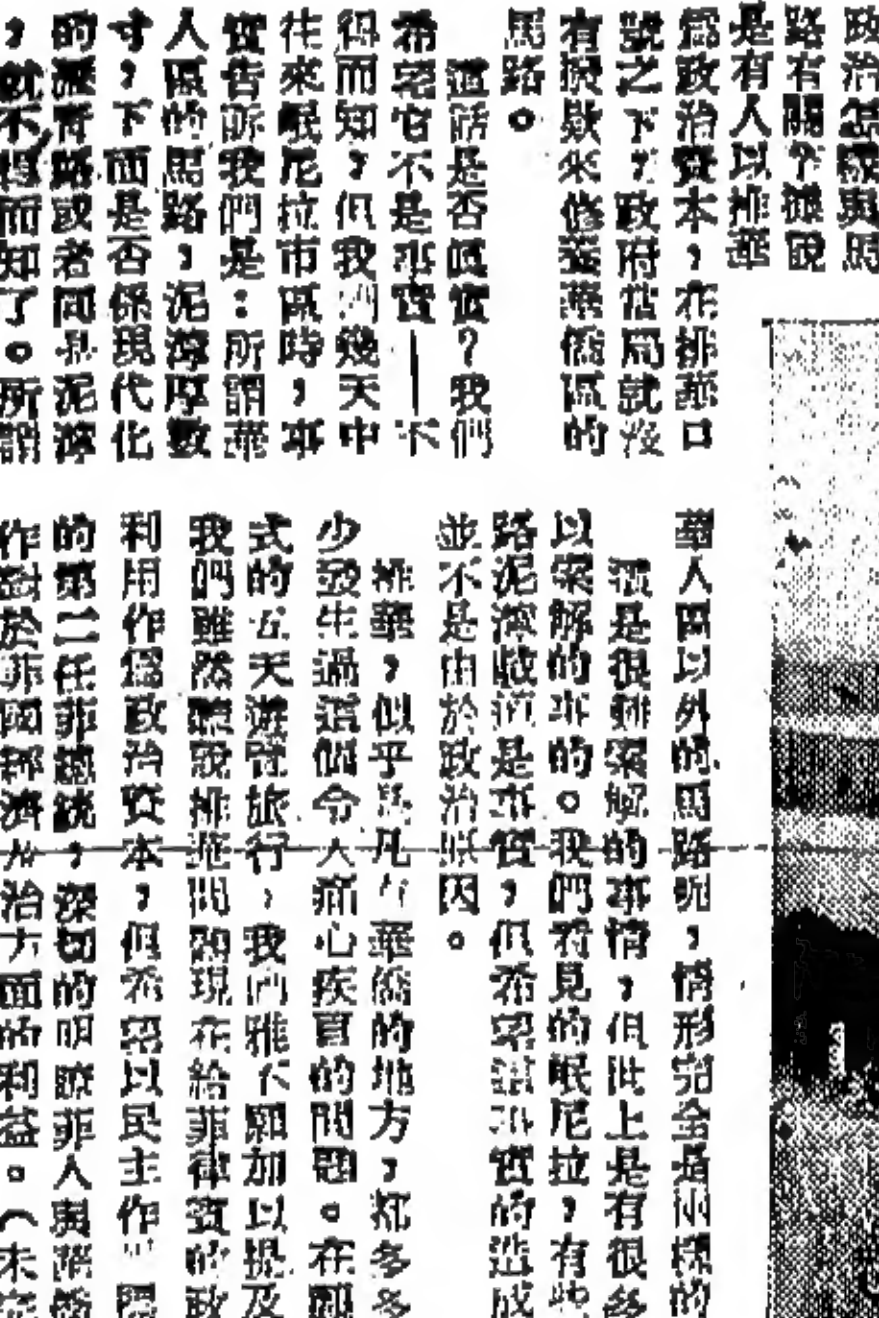 政治怎樣與馬
路有關？據說
是有人以排華
為政治資本，在排華口
號之下，政府當局就沒
有撥款來修葺華僑區的
馬路。
這話是否屬實？我們
希望它不是事實——不
得而知，但我們幾天中
往來岷尼拉市區時，事
實告訴我們是：所謂華
人區的馬路，泥濘厚數
寸，下面是否係現代化
的瀝青路或者同是泥濘
，就不得而知了。所謂
華人區以外的馬路呢，情形完全是兩樣的
。
這是很難索解的事情，但世上是有很多
以索解的事的。我們看見的岷尼拉，有些
路泥濘敗壞是事實，但希望這事實的造成
並不是由於政治原因。
排華，似乎為凡有華僑的地方，都多多
少發生過這個令人痛心疾首的問題。在
式的五天遊覽旅行，我們雖不願加以提及
我們雖然聽說排華問題現在給菲律賓的政
利用作為政治資本，但希望以民主作
的第二任菲總統，深切的明瞭菲人與華僑
作對於菲國經濟政治方面的利益。（未完